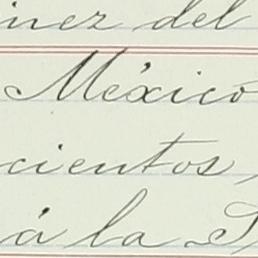 inez del
México
cientos,
á la S